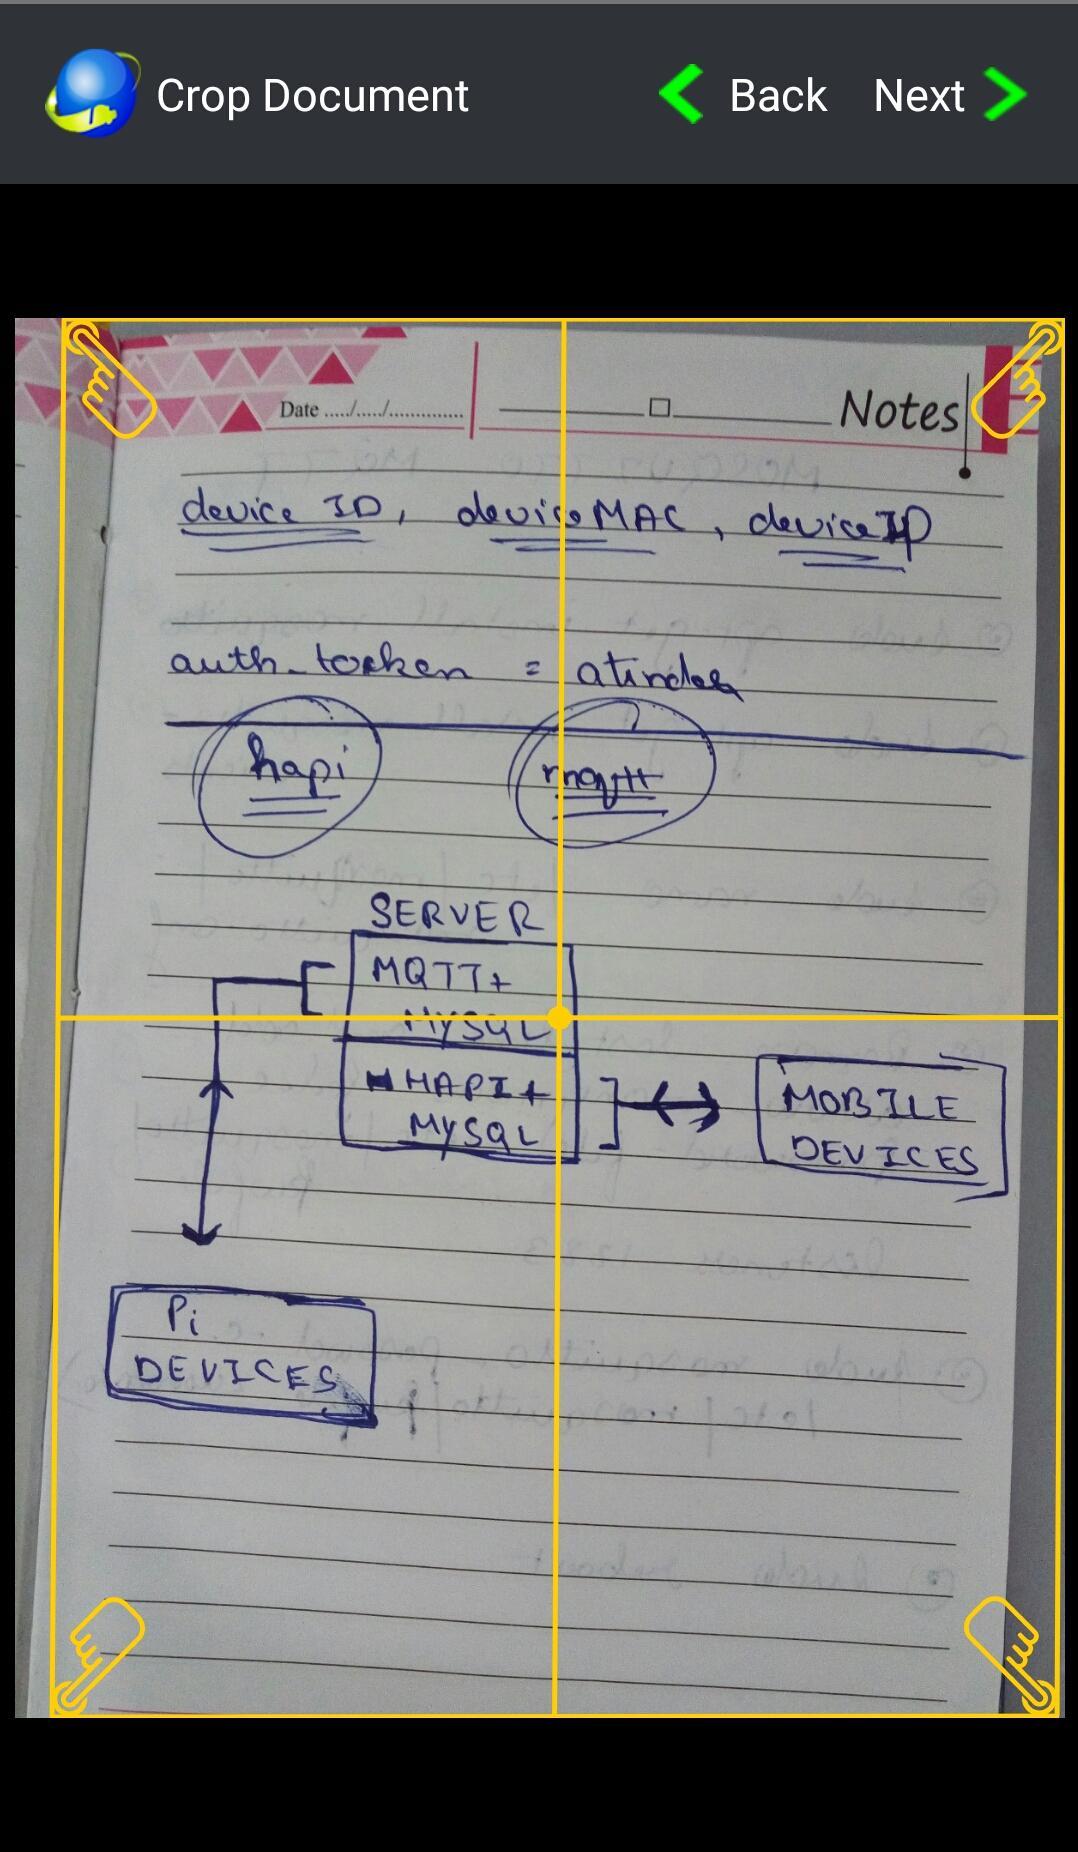 Crop Document Back Next
Date ...../...../..............
Notes
device ID, device MAC, device IP
auth-tocken =
hapi mqtt
SERVER
MQTT+
MYSQL
HAPI+
MYSQL
MOBILE
DEVICES
Pi
DEVICES